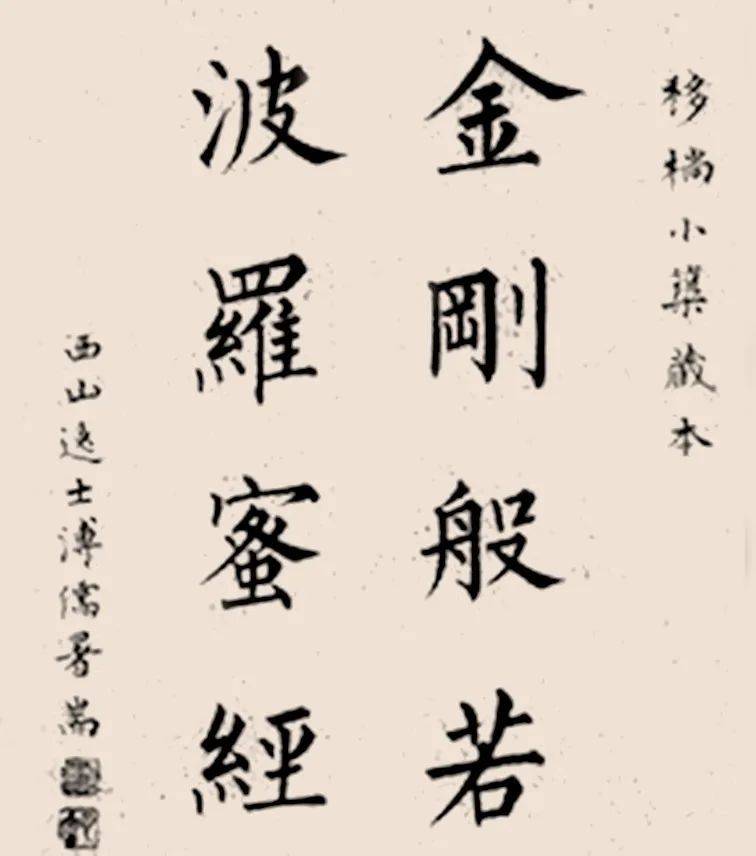 移椾小築藏本
金剛般若
波羅蜜經
西山逸士溥儒署耑